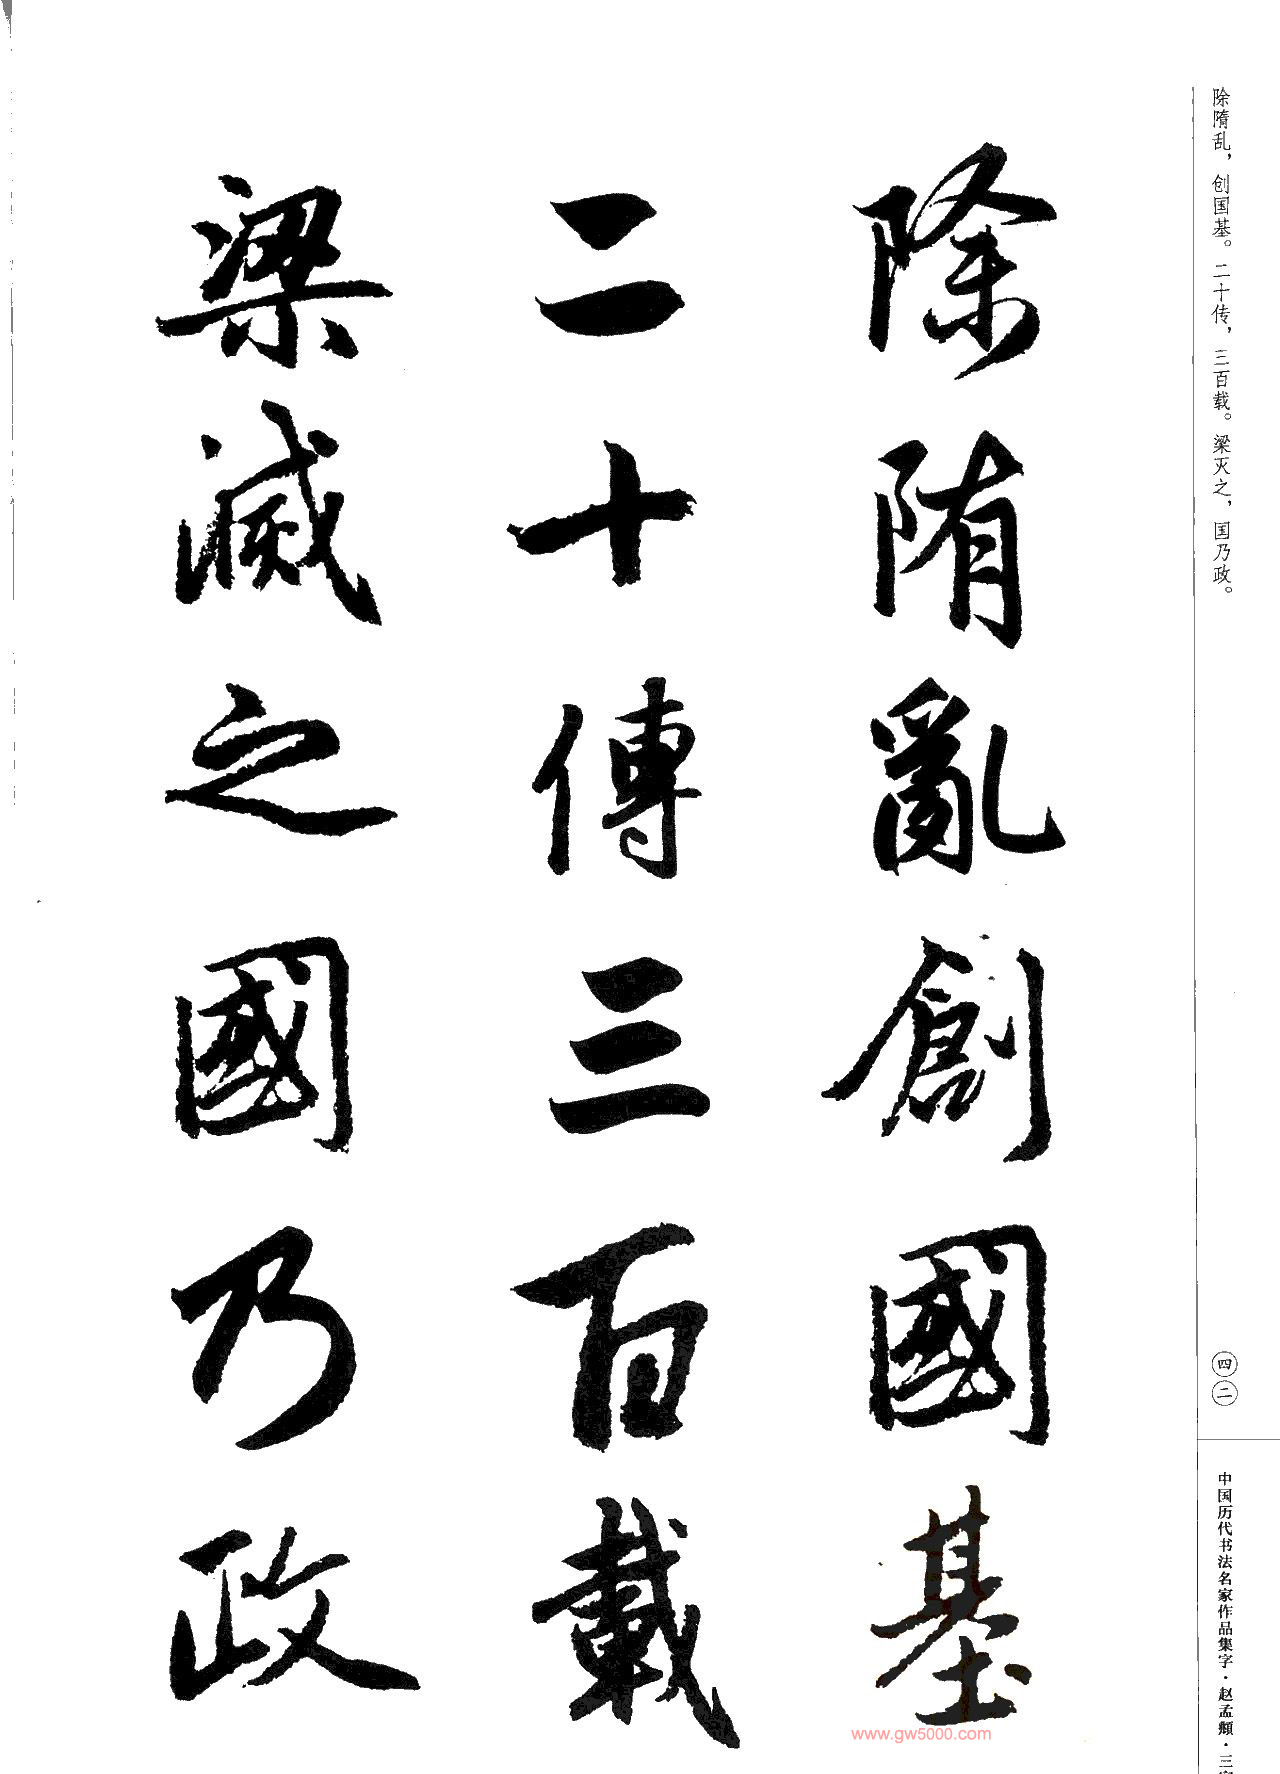 除隋乱，创国基。二十传，三百载。梁灭之，国乃政。
除隋亂創國基
二十傳三百載
梁滅之國乃政
四二
中国历代书法名家作品集字·赵孟頫·三
www.gw5000.com